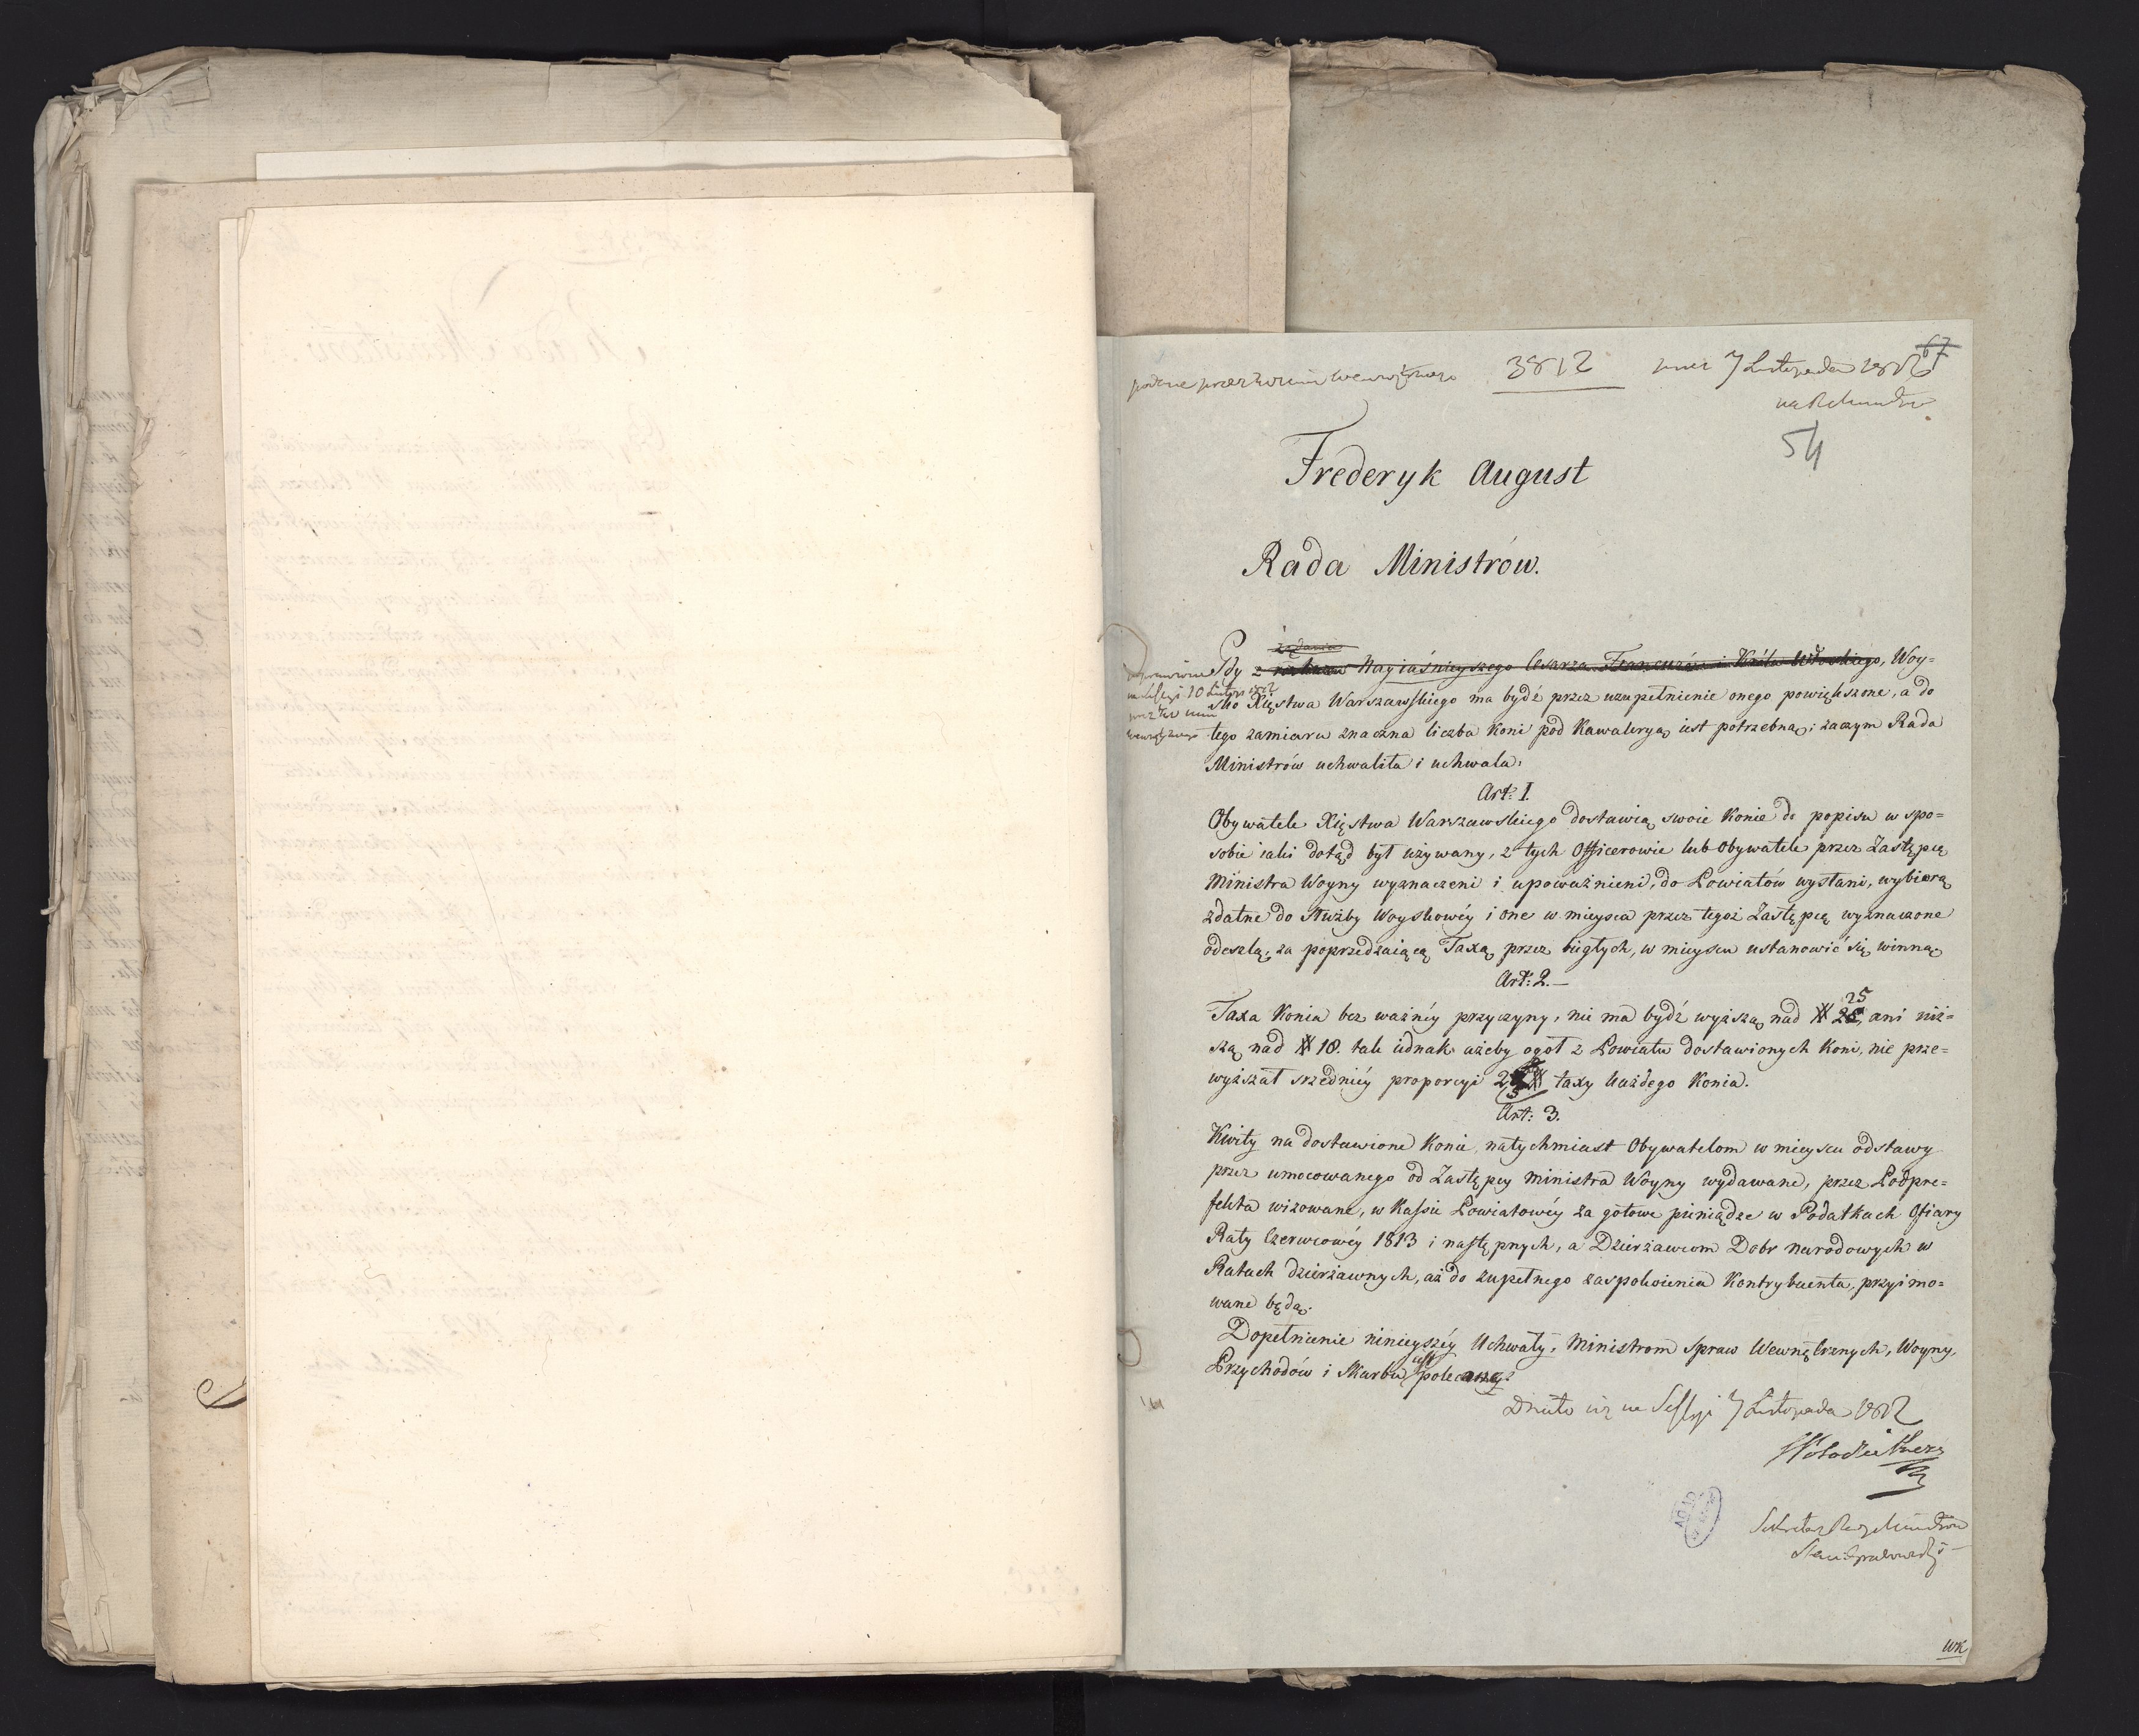 3812 dnia 7 Listopada 1812
67
54
Frederyk August
Rada Ministrów.
żądania
Gdy z rozkazu Nayiaśnieyszego Cesarza Francuzów i Króla Włoskiego, Woy=
sko Xięstwa Warszawskiego ma bydź przez uzupełnienie onego powiększone, a do
tego zamiaru znaczna liczba koni pod Kawaleryą iest potrzebną; zaczym Rada
Ministrów uchwaliła i uchwala:
Art: I.
Obywatele Xięstwa Warszawskiego dostawią swoie Konie do popisu w spo=
sobie iaki dotąd był używany, z tych Officerowie lub Obywatele przez Zastępcę
Ministra Woyny wyznaczeni i upoważnieni, do Powiatów wysłani, wybiorą
zdatne do Służby Woyskowéy i one w mieysca przez tegoż Zastępcę wyznaczone
odeszlą, za poprzedzaiącą Taxą, przez biegłych, w mieyscu ustanowić się winną
Art: 2.—
25
Taxa Konia bez ważnéy przyczyny, nie ma bydź wyższą nad # 28, ani niż=
szą nad # 18. tak iednak ażeby ogół z Powiatu dostawionych Koni, nie prze=
wyższał srzedniéy proporcyi 2 # taxy każdego Konia.
Art: 3.
Kwity na dostawione Konie, natychmiast Obywatelom w mieyscu odstawy
przez umocowanego od Zastępcy Ministra Woyny wydawane, przez Podpre=
fekta wizowane, w Kassie Powiatowéy za gotowe pieniądze w Podatkach Ofiary
Raty Czerwcowéy 1813 i następnych, a Dzierżawcom Dobr Narodowych w
Ratach dzierżawnych, aż do zupełnego zaspokoienia Kontrybuenta, przyimo=
wane będą.
Dopełnienie ninieyszéy Uchwały, Ministrom Spraw Wewnętrznych, Woyny,
iest
Przychodów i Skarbu polecone.
Działo się na Sessyi 7 Listopada 1812
Sekretarz Rady Ministrów
WK